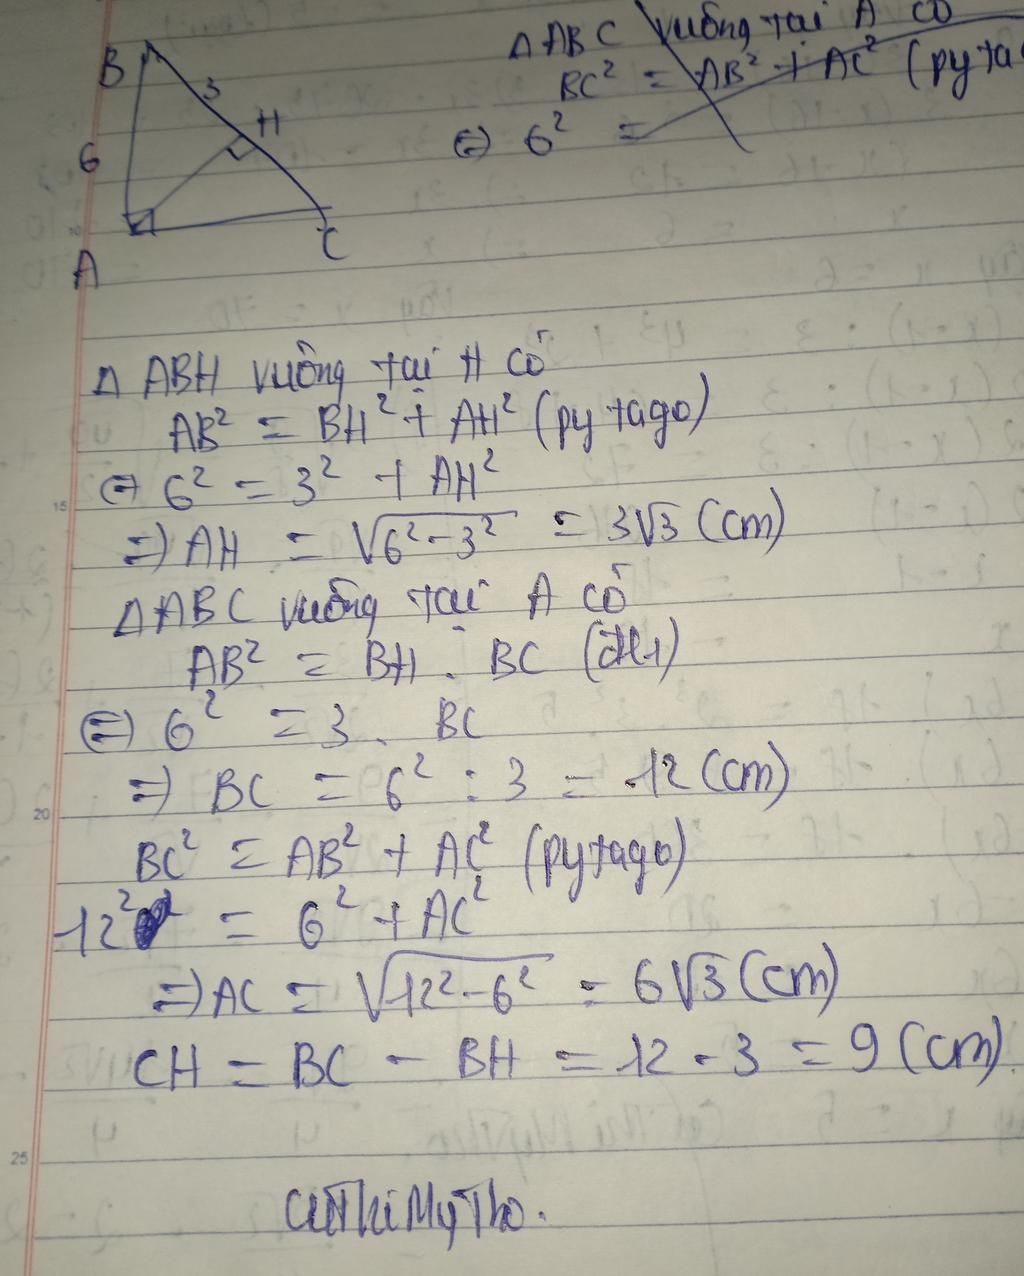 B
3
H
6
A
C
Δ ABC vuông tại A có
BC² = AB² + AC² (pyta
⇔ 6² =
Δ ABH vuông tại H có
AB² = BH² + AH² (pytago)
⇔ 6² = 3² + AH²
⇒ AH = √6²-3² = 3√3 (cm)
Δ ABC vuông tại A có
AB² = BH . BC (đl1)
⇔ 6² = 3 . BC
⇒ BC = 6² : 3 = 12 (cm)
BC² = AB² + AC² (pytago)
12² = 6² + AC²
⇒ AC = √12²-6² = 6√3 (cm)
CH = BC - BH = 12 - 3 = 9 (cm)
15
20
25